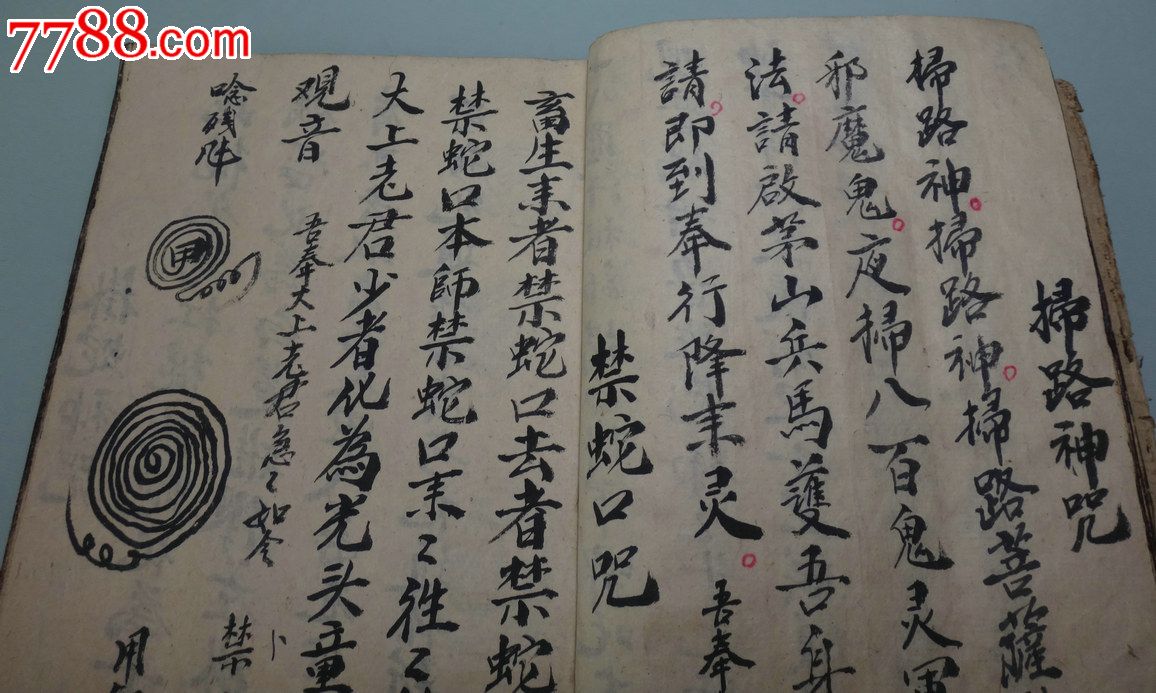 7788.com
掃路神咒
掃路神掃路神掃路菩薩
邪魔鬼夜掃八百鬼灵
法請啟茅山兵馬護吾身
請即到奉行降末灵
吾奉
禁蛇口咒
畜生末者禁蛇口去者禁蛇
禁蛇口本師禁蛇口末〻往〻
大上老君少者化為光头
观音
吾奉大上老君急〻如令
唸
甲
禁
用